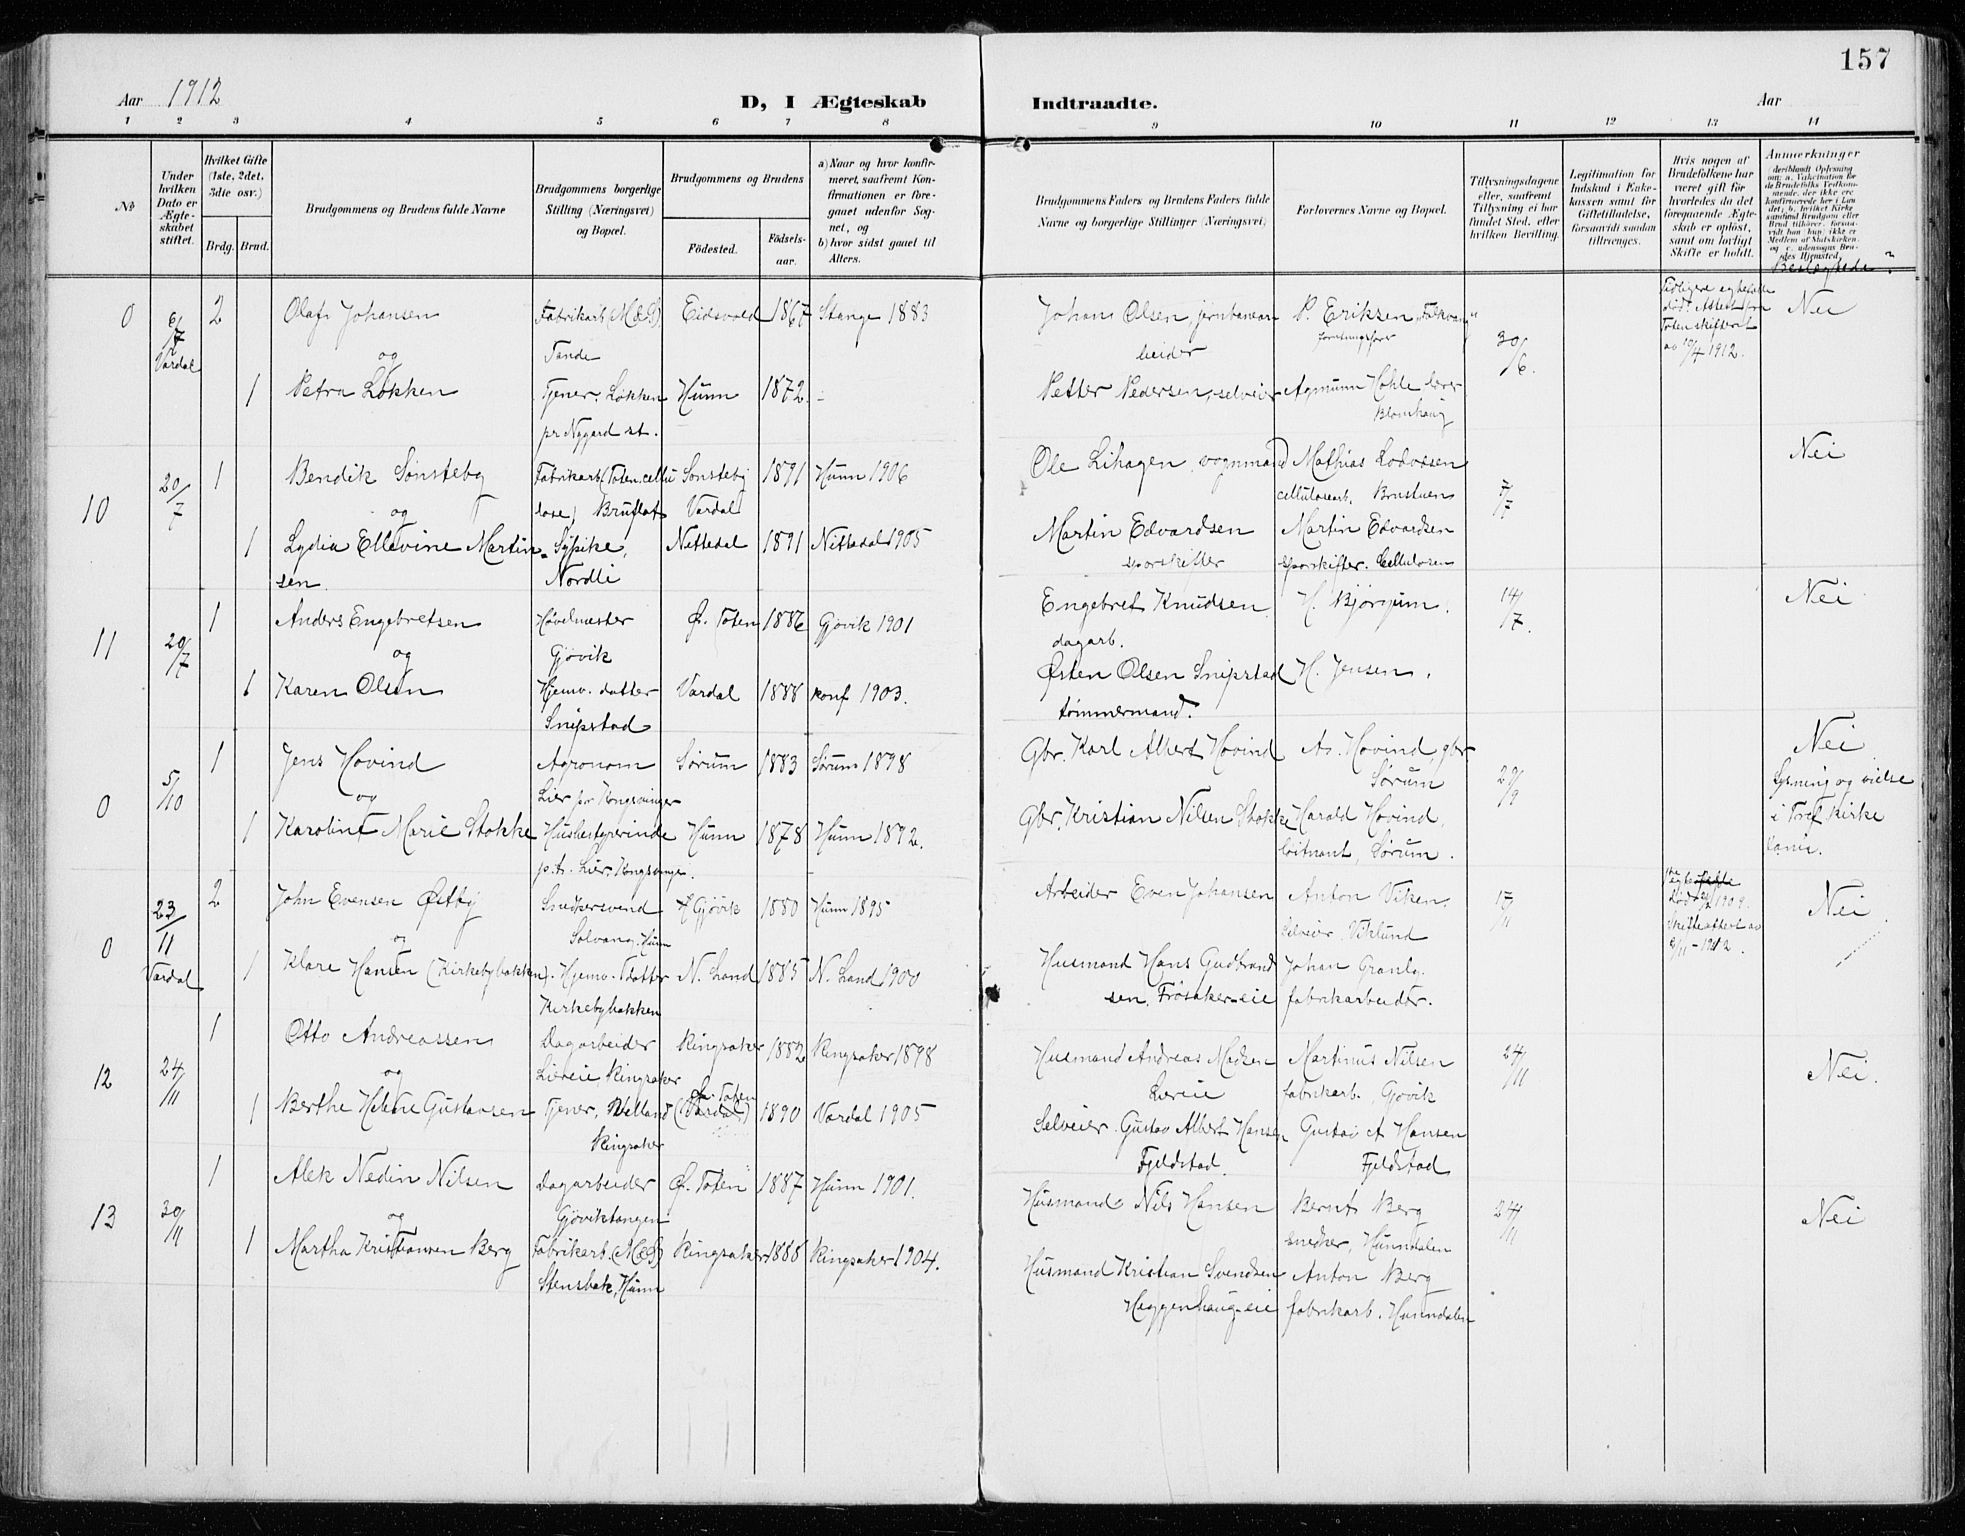 157
Aar 1912
D, I Ægteskab Indtraadte.
Aar
1 2 3 4 5 6 7 8 9 10 11 12 13 14
No
Under hvilken Dato er Ægteskabet stiftet.
Hvilket Gifte (1ste, 2det, 3die osv.)
Brdg. Brud.
Brudgommens og Brudens fulde Navne
Brudgommens borgerlige Stilling (Næringsvei) og Bopæl.
Brudgommens og Brudens
Födested. Födselsaar.
a) Naar og hvor konfirmeret, saafremt Konfirmationen er foregaaet udenfor Sognet, og
b) hvor sidst gaaet til Alters.
Brudgommens Faders og Brudens Faders fulde Navne og borgerlige Stillinger (Næringsvei)
Forlovernes Navne og Bopæl.
Tillysningsdagene eller, saafremt Tillysning ei har fundet Sted, efter hvilken Bevilling.
Legitimation for Indskud i Enkekassen samt for Giftetilladelse, forsaavidt saadan tiltrænges.
Hvis nogen af Brudefolkene har været gift för hvorledes da det foregaaende Ægteskab er oplöst, samt om lovligt Skifte er holdt.
Anmærkninger
Beslægtede?
0 6/7 Vardal 2 Olaf Johansen Fabrikarb. (M&S) Tande Eidsvold 1867 Stange 1883 Johans Olsen, jernbanearbeider P. Eriksen "Folkvang" forretningsfører 30/6. Nei
Toten skifteret av 10/4 1912.
og
1 Petra Løkken Tjener. Løkken pr Nygard st. Hunn 1872 - Petter Pedersen, selveier Agmunn Hohle lærer
10 20/7 1 Bendik Sønsteby Fabrikarb (Toten cellulose) Bruflat Sønsteby Vardal 1891 Hunn 1906 Ole Lihagen, vognmand Mathias Lodvesen cellulosearb. Brustuen 7/7 Nei
og
1 Lydia Ellevine Martinsen Sypike, Nordli Nittedal 1891 Nittedal 1905 Martin Edvardsen sporskifter Martin Edvardsen sporskifter. Cellulosen
11 20/7 1 Anders Engebretsen Høvelmester Gjøvik Ø. Toten 1886 Gjøvik 1901 Engebret Knudsen dagarb. H. Bjørgum. 14/7. Nei
og
1 Karen Olsen Hjemv. datter Snipstad Vardal 1888 konf 1903. Østen Olsen Snipstad tømmermand. H. Jensen.
0 5/10 1 Jens Hovind Agronom Lier pr Kongsvinger Sørum 1883 Sørum 1898 Gbr. Karl Albert Hovind As. Hovind, gbr Sørum 29/9 Nei
Lysning og vielse i Tref. kirke
og
1 Karoline Marie Stokke Husbestyrerinde p.t. Lier, Kongsvinger. Hunn 1878 Hunn 1892. Gbr. Kristian Nilsen Stokke Harald Hovind, løitnant, Sørum.
0 23/11 Vardal 2 John Evensen Østby Snedkersvend Solvang. Hunn Gjøvik 1880 Hunn 1895 Arbeider Even Johansen Anton Viken. Selveier, Viklund 17/11 Skifteattest av 2/11-1912. Nei
og
1 Klare Hansen (Kirkebybakken). Hjemv. Datter Kirkebybakken N. Land 1885 N. Land 1900 Husmand Hans Gudbrandsen, Frøsaker-eie Johan Granly. fabrikarbeider.
12 24/11 1 Otto Andreassen Dagarbeider Liereie Ringsaker Ringsaker 1882 Ringsaker 1898 Husmand Andreas Madsen Liereie Martinus Nilsen fabrikarb., Gjøvik 24/11 Nei.
og
1 Berthe Helene Gustavsen Tjener, Velland Ringsaker Ø. Toten (Vardal) 1890 Vardal 1905 Selveier. Gustav Albert Hansen Fjeldstad. Gustav A Hansen Fjeldstad
13 30/11 1 Alek Nedin Nilsen Dagarbeider Gjøviktangen Ø. Toten 1887 Hunn 1901. Husmand Nils Hansen Bernt Berg snedker, Hunndalen 24/11 Nei
og
1 Martha Kristiansen Berg Fabrikarb. (M&S) Stensbak, Hunn Ringsaker 1888 Ringsaker 1904. Husmand Kristian Svendsen Heggenhaug-eie Anton Berg fabrikarb. Hunndalen